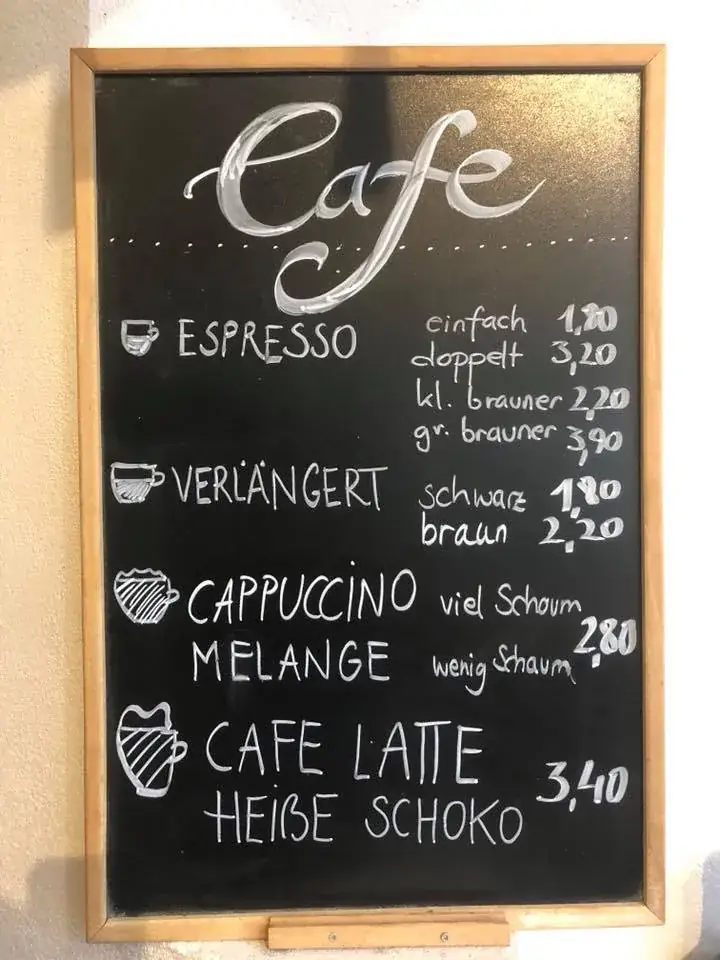 Cafe
ESPRESSO einfach 1,80
doppelt 3,20
kl. brauner 2,20
gr. brauner 3,90
VERLÄNGERT schwarz 1,80
braun 2,20
CAPPUCCINO viel Schaum
2,80
MELANGE wenig Schaum
CAFE LATTE
3,40
HEIßE SCHOKO